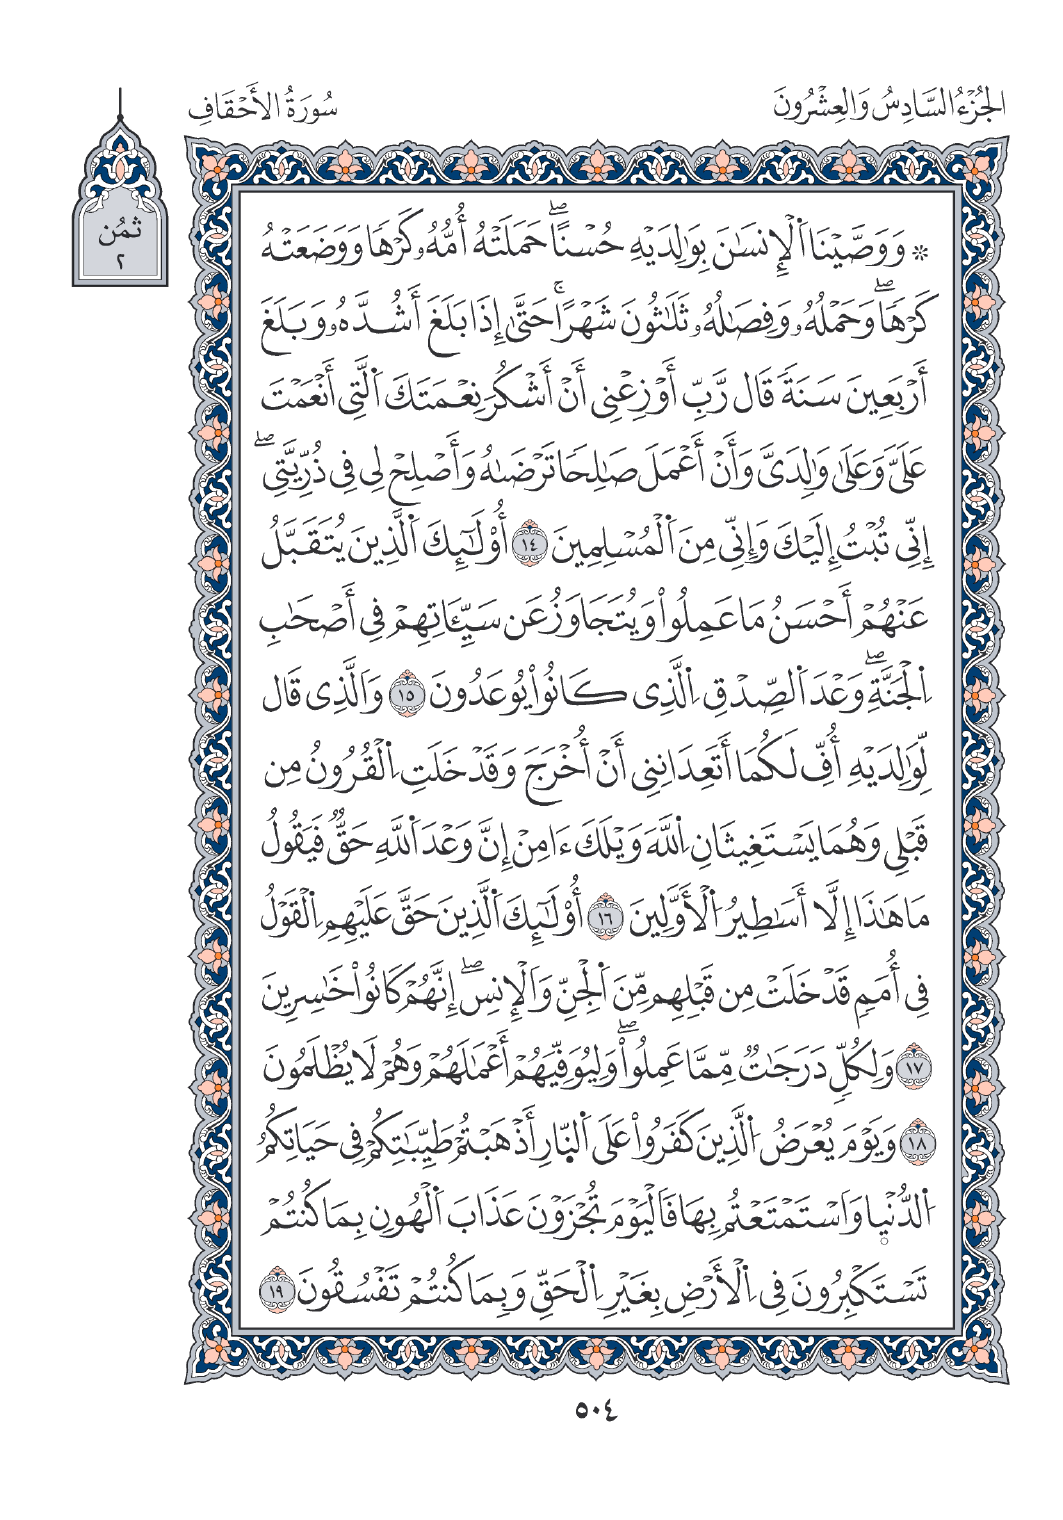 الجُزْءُ السَّادِسُ وَالعِشْرُونَ
سُورَةُ الأَحْقَافِ
ثُمُن
٢
۞ وَوَصَّيْنَا اَ۬لْإِنسَٰنَ بِوَٰلِدَيْهِ حُسْناًۖ حَمَلَتْهُ أُمُّهُۥ كَرْهاٗ وَوَضَعَتْهُ
كَرْهاٗۖ وَحَمْلُهُۥ وَفِصَٰلُهُۥ ثَلَٰثُونَ شَهْراًۚ حَتَّىٰ إِذَا بَلَغَ أَشُدَّهُۥ وَبَلَغَ
أَرْبَعِينَ سَنَةٗ قَالَ رَبِّ أَوْزِعْنِي أَنْ أَشْكُرَ نِعْمَتَكَ اَ۬لَّتِي أَنْعَمْتَ
عَلَيَّ وَعَلَىٰ وَٰلِدَيَّ وَأَنْ أَعْمَلَ صَٰلِحاٗ تَرْضَىٰهُ وَأَصْلِحْ لِي فِي ذُرِّيَّتِيۖ
إِنِّي تُبْتُ إِلَيْكَ وَإِنِّي مِنَ اَ۬لْمُسْلِمِينَ ١٤ أُوْلَٰٓئِكَ اَ۬لَّذِينَ يُتَقَبَّلُ
عَنْهُمْ أَحْسَنُ مَا عَمِلُواْ وَيُتَجَاوَزُ عَن سَيِّـَٔاتِهِمْ فِي أَصْحَٰبِ
اِ۬لْجَنَّةِۖ وَعْدَ اَ۬لصِّدْقِ اِ۬لَّذِي كَانُواْ يُوعَدُونَ ١٥ وَالَّذِي قَال
لِّوَٰلِدَيْهِ أُفِّ لَكُمَا أَتَعِدَانِنِي أَنْ أُخْرَجَ وَقَدْ خَلَتِ اِ۬لْقُرُونُ مِن
قَبْلِي وَهُمَا يَسْتَغِيثَانِ اِ۬للَّهَ وَيْلَكَ ءَامِنْ إِنَّ وَعْدَ اَ۬للَّهِ حَقّٞ فَيَقُولُ
مَا هَٰذَا إِلَّا أَسَٰطِيرُ اُ۬لْأَوَّلِينَ ١٦ أُوْلَٰٓئِكَ اَ۬لَّذِينَ حَقَّ عَلَيْهِمِ اِ۬لْقَوْلُ
فِي أُمَمٖ قَدْ خَلَتْ مِن قَبْلِهِم مِّنَ اَ۬لْجِنِّ وَالْإِنسِۖ إِنَّهُمْ كَانُواْ خَٰسِرِينَ
١٧ وَلِكُلّٖ دَرَجَٰتٞ مِّمَّا عَمِلُواْۖ وَلِيُوَفِّيَهُمْ أَعْمَٰلَهُمْ وَهُمْ لَا يُظْلَمُونَ
١٨ وَيَوْمَ يُعْرَضُ اُ۬لَّذِينَ كَفَرُواْ عَلَى اَ۬لنّ۪ارِ أَذْهَبْتُمْ طَيِّبَٰتِكُمْ فِي حَيَاتِكُمُ
اُ۬لدُّنْي۪ا وَاَسْتَمْتَعْتُم بِهَا فَالْيَوْمَ تُجْزَوْنَ عَذَابَ اَ۬لْهُونِ بِمَا كُنتُمْ
تَسْتَكْبِرُونَ فِي اِ۬لْأَرْضِ بِغَيْرِ اِ۬لْحَقِّ وَبِمَا كُنتُمْ تَفْسُقُونَ ١٩
٥٠٤